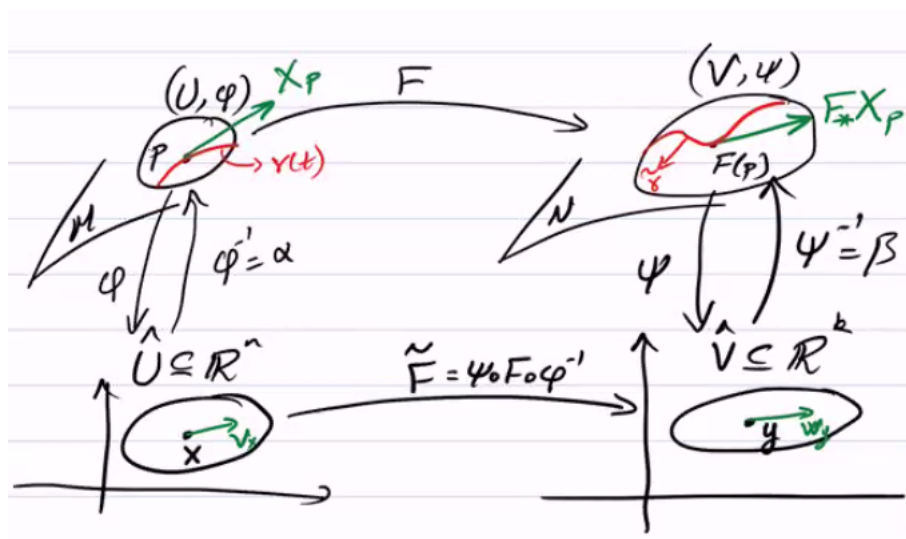 (U, φ)
X_P
F
(V, ψ)
F_* X_p
P
γ(t)
F(p)
γ̃
M
N
φ
φ⁻¹ = α
ψ
ψ⁻¹ = β
Û ⊆ ℝⁿ
F̃ = ψ∘F∘φ⁻¹
V̂ ⊆ ℝᵏ
x
v_x
y
w_y